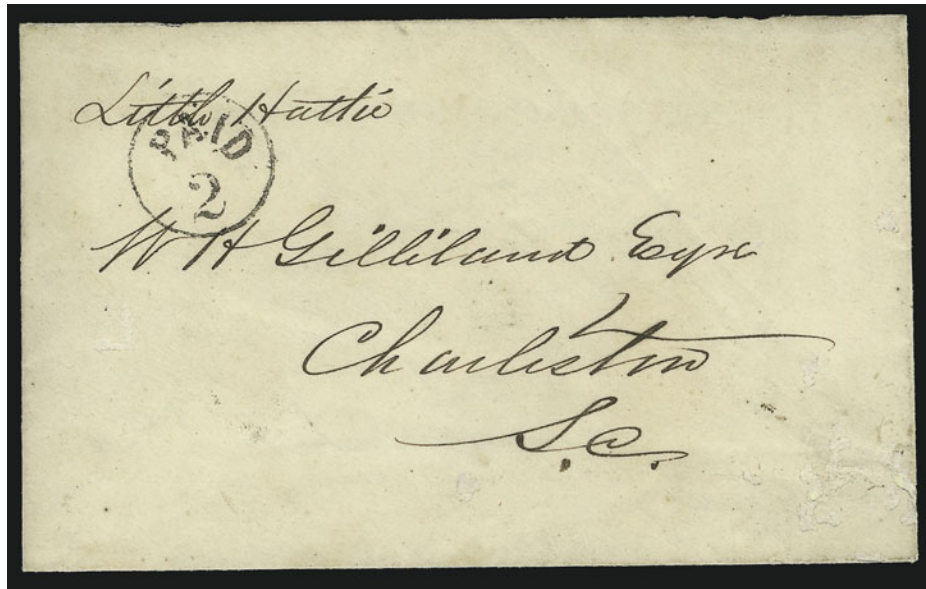 Little Hattie
PAID
2
W. H Gilliland Esqr
Charleston
S.C.